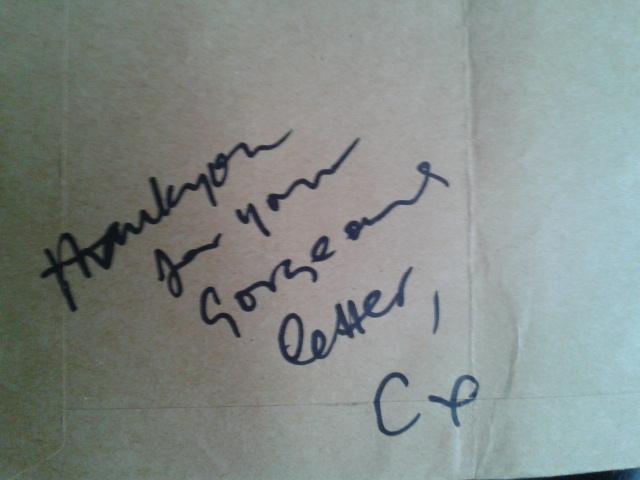 Thankyou
for your
Gorgeous
letter,
Cx